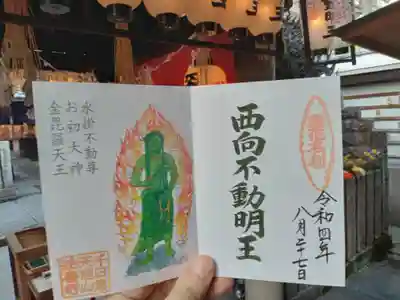 西向不動明王
令和四年
八月二十七日
水掛不動尊
お初大神
金毘羅天王